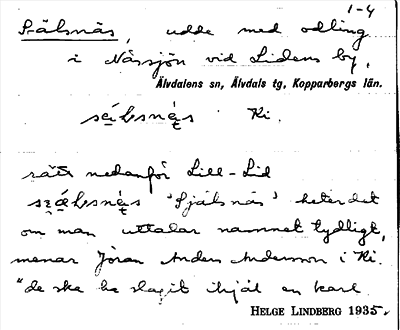 1-4
Själsnäs, udde med odling
i Nässjön vid Lidens by,
Älvdalens sn, Älvdals tg, Kopparbergs län.
Ki.
rätt nedanför Lill-Lid
'Själsnäs' heter det
om man uttalar namnet tydligt,
menar Jöran Anders Andersson i Ki.
"de ska ha slagit ihjäl en karl
HELGE LINDBERG 1935.